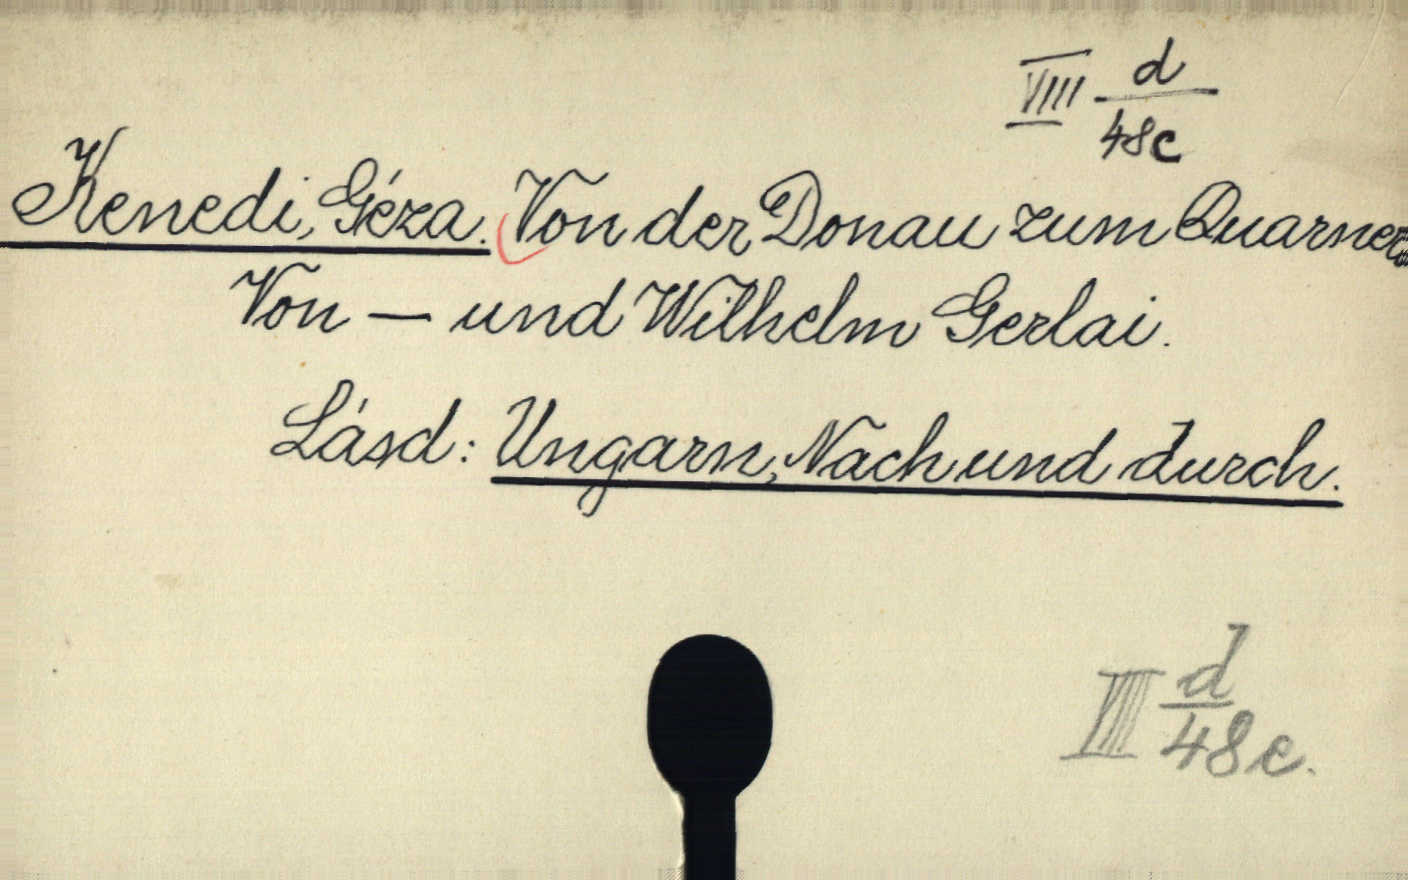 VIII d
48c
Kenedi, Géza. Von der Donau zum Quarnero
Von — und Wilhelm Gerlai.
Lásd: Ungarn, Nach und durch.
VIII d
48c.